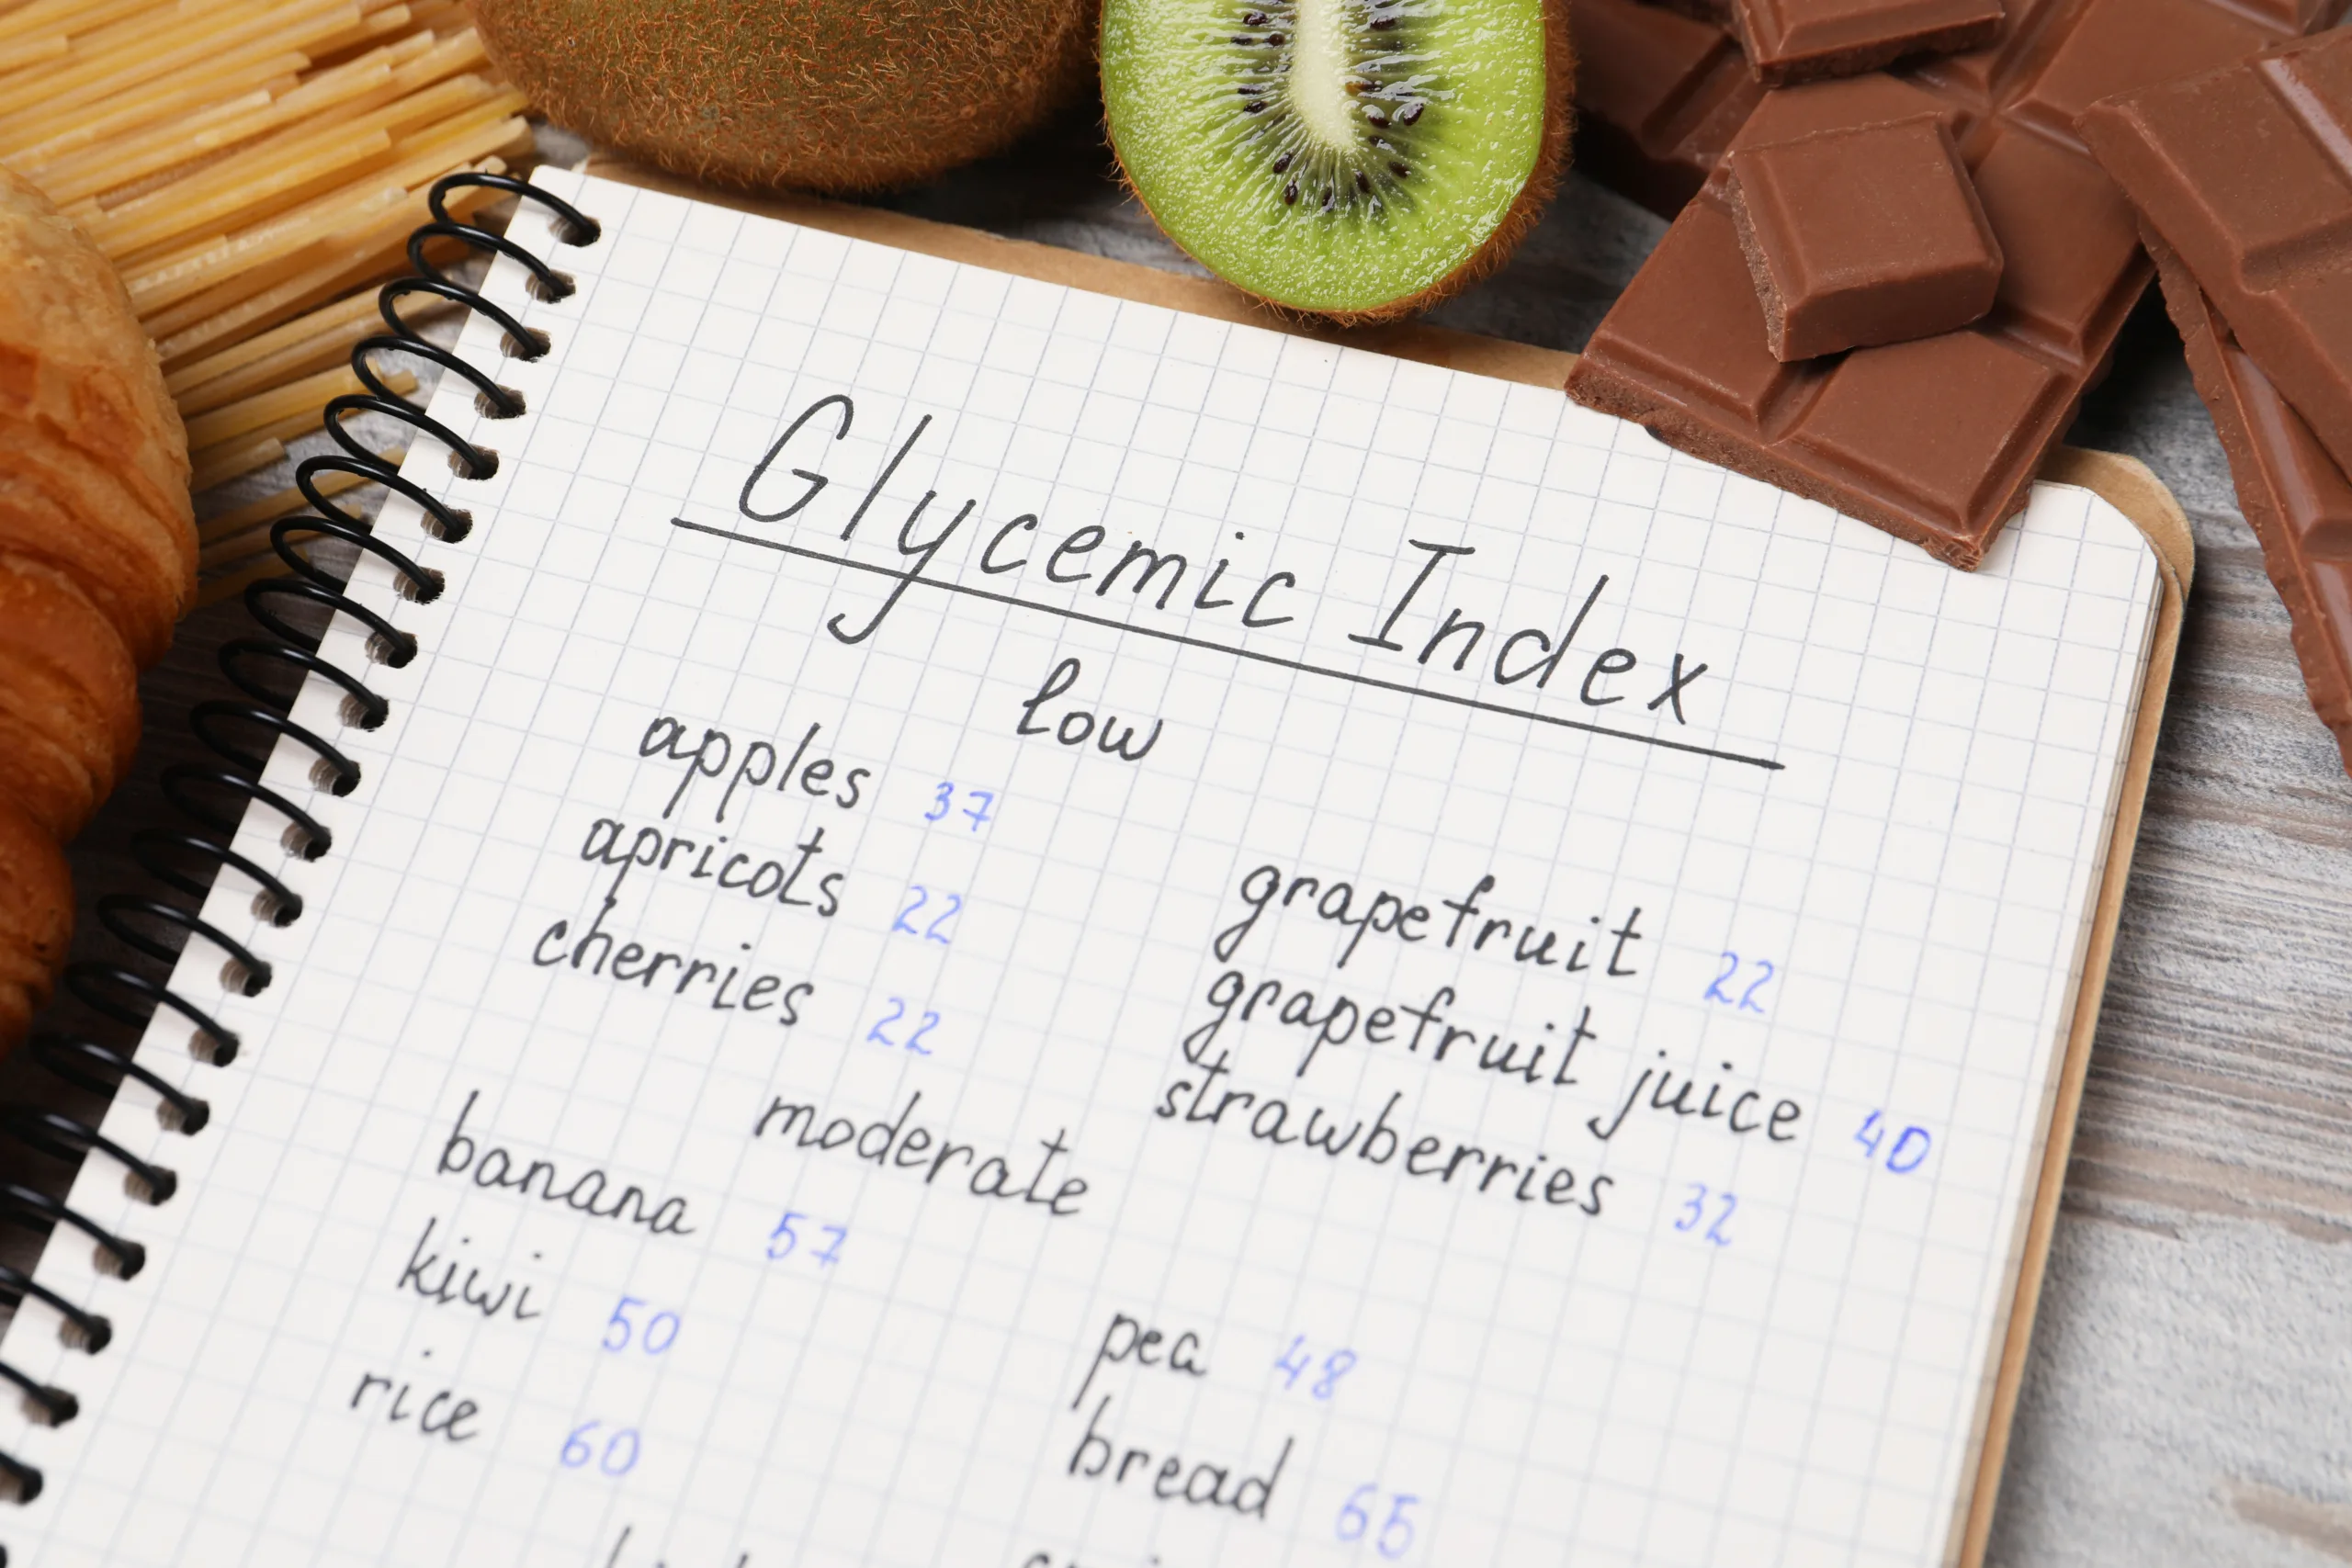 Glycemic Index
low
apples 37
apricots 22
cherries 22
grapefruit 22
grapefruit juice 40
strawberries 32
moderate
banana 57
kiwi 50
rice 60
pea 48
bread 65